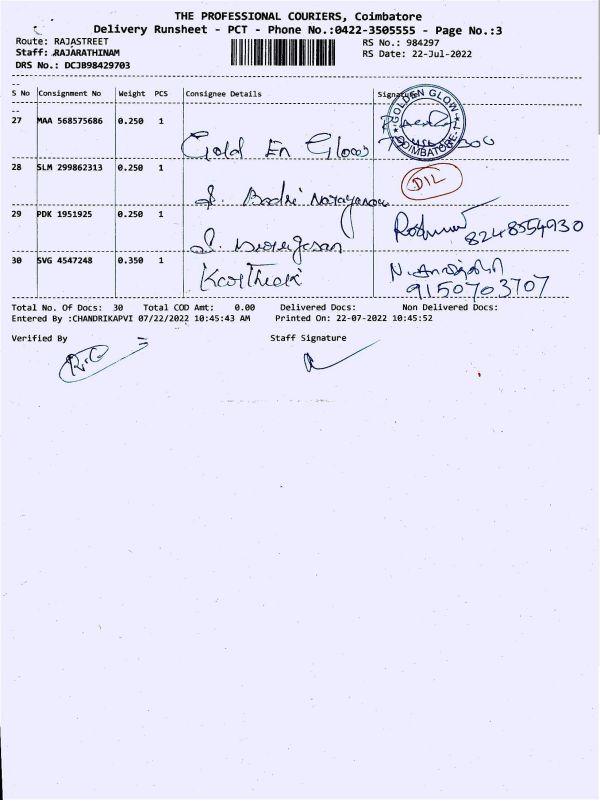 THE PROFESSIONAL COURIERS, Coimbatore
Delivery Runsheet - PCT - Phone No.:0422-3505555 - Page No.:3
Route: RAJASTREET
RS No.: 984297
Staff: RAJARATHINAM
RS Date: 22-Jul-2022
DRS No.: DCJB98429703
S No Consignment No Weight PCS Consignee Details Signature
GOLDEN GLOW
COIMBATORE-1
27 MAA 568575686 0.250 1
Gold En Glow
28 SLM 299862313 0.250 1
DIL
S. Badri Narayanan
29 PDK 1951925 0.250 1
8248554930
30 SVG 4547248 0.350 1
Karthick
9150703707
Total No. Of Docs: 30 Total COD Amt: 0.00 Delivered Docs: Non Delivered Docs:
Entered By :CHANDRIKAPVI 07/22/2022 10:45:43 AM Printed On: 22-07-2022 10:45:52
Verified By Staff Signature